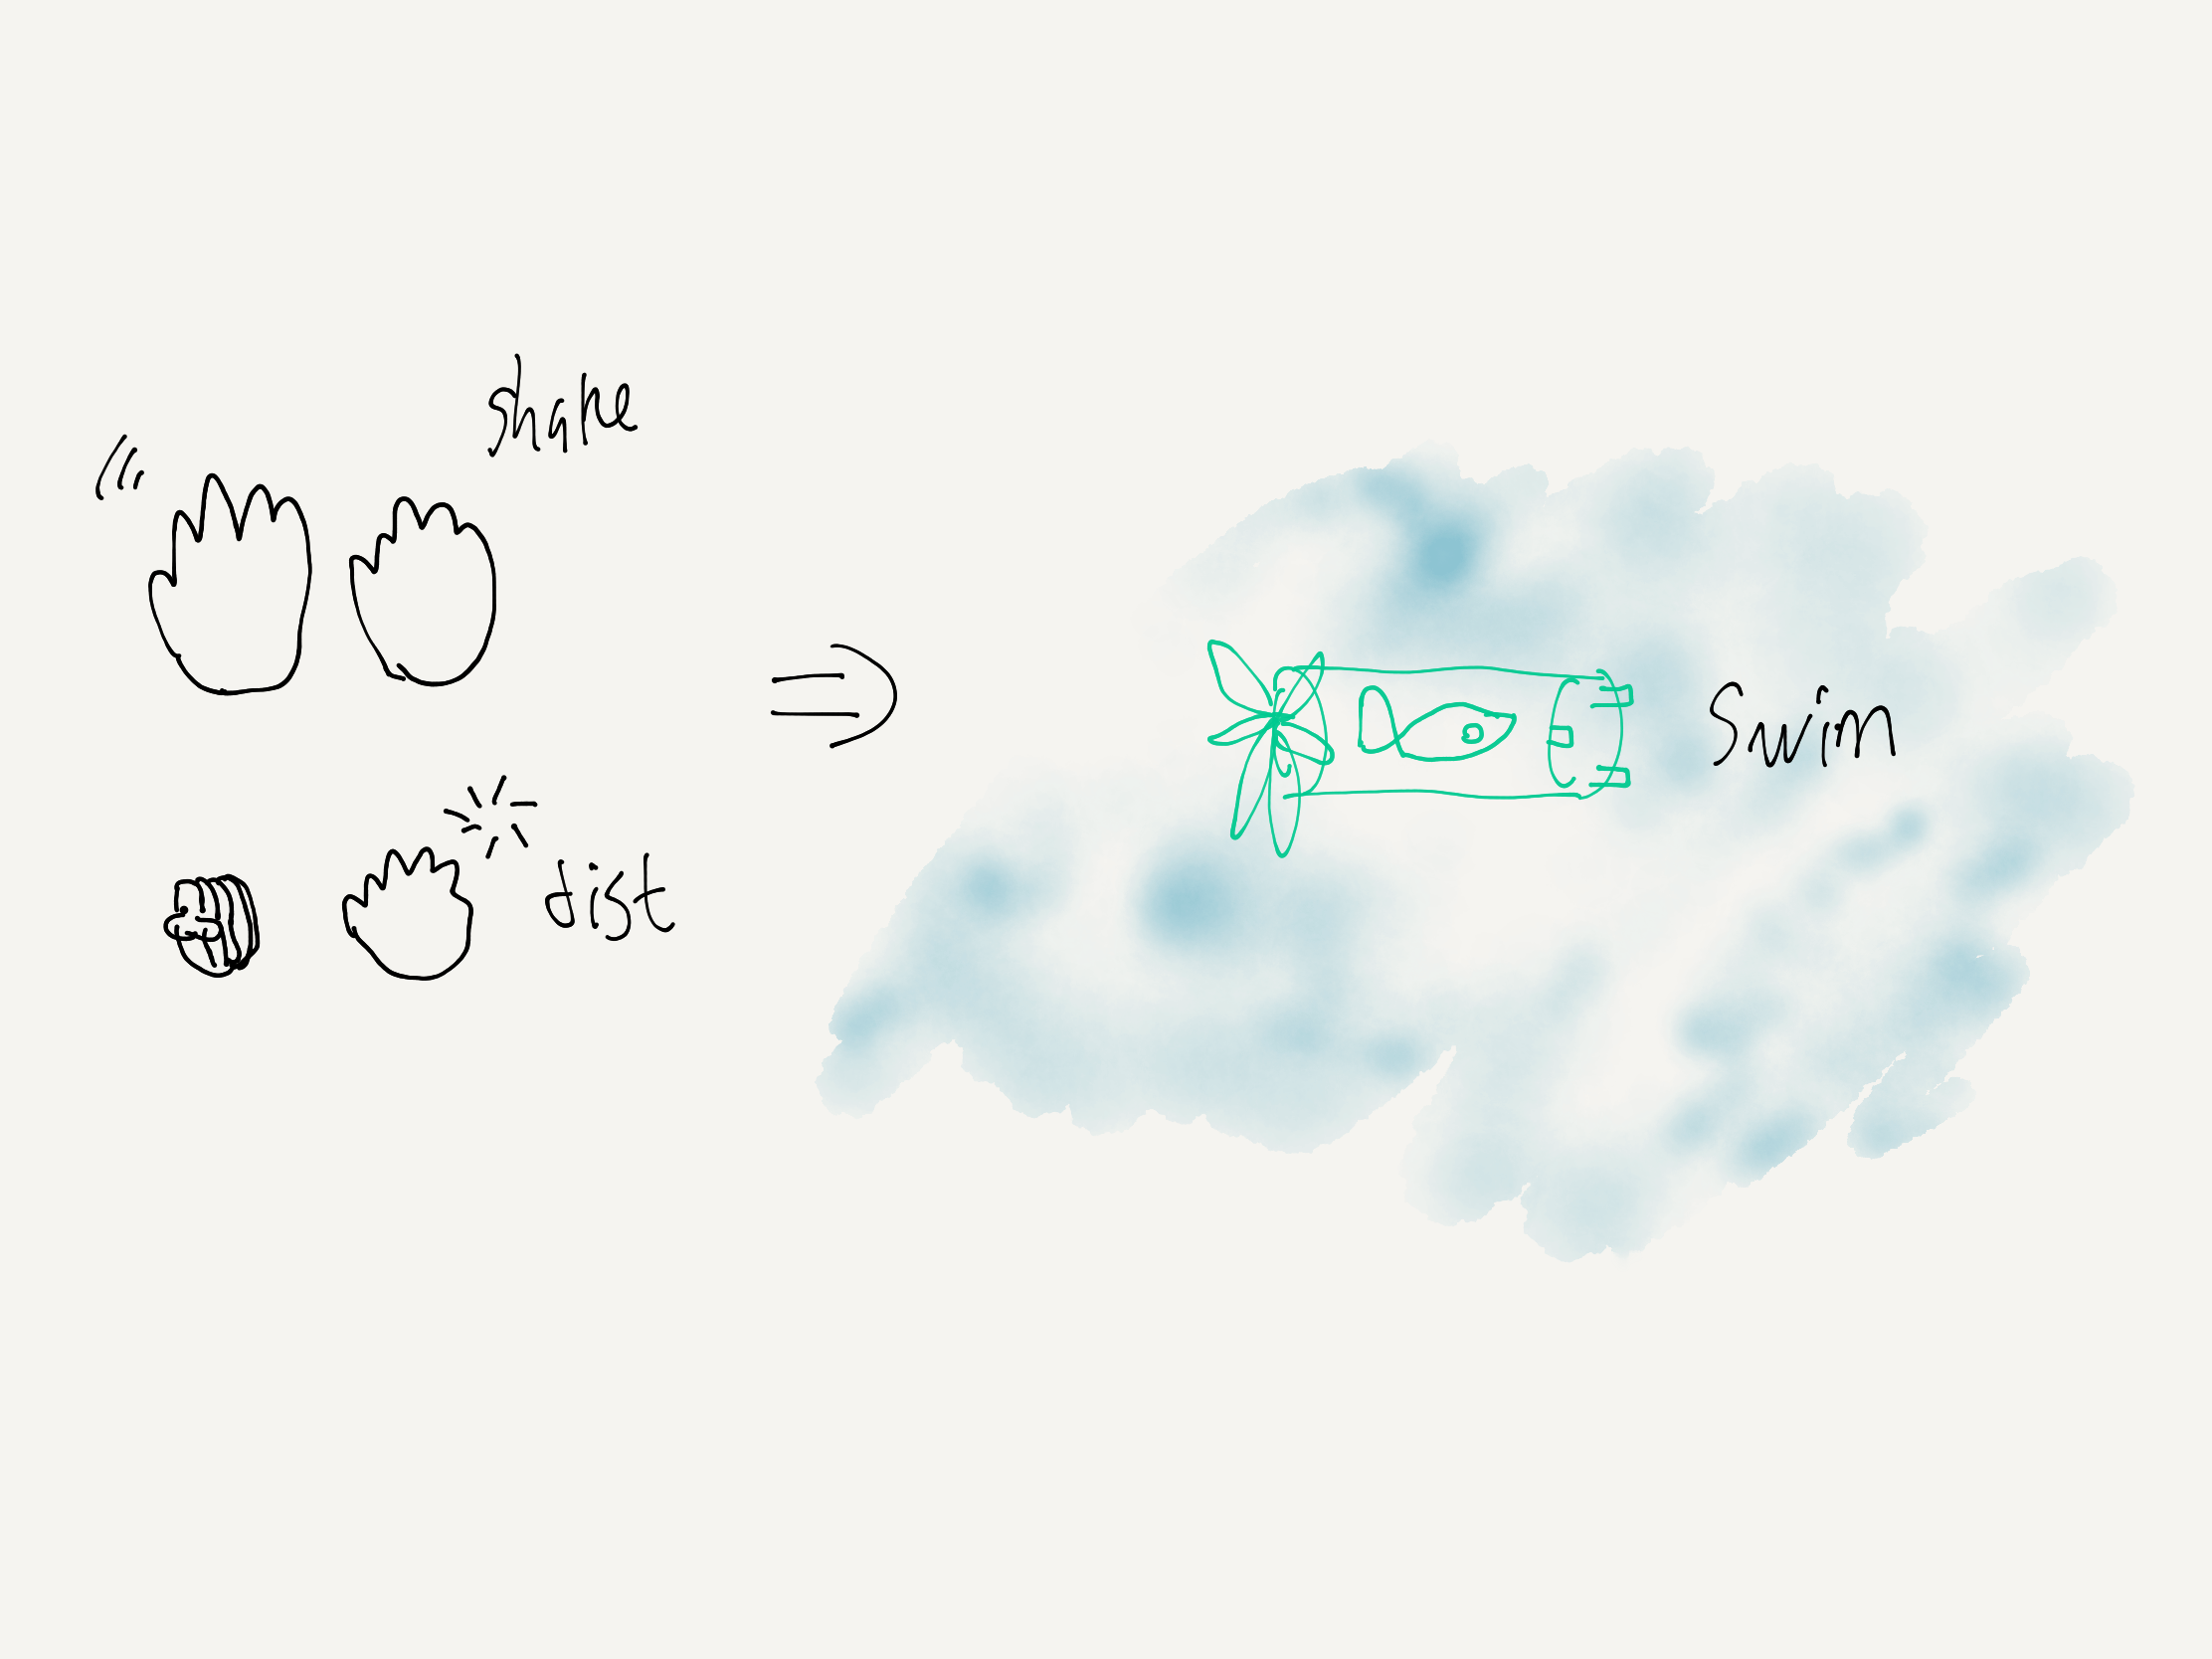 shake
dist
Swim